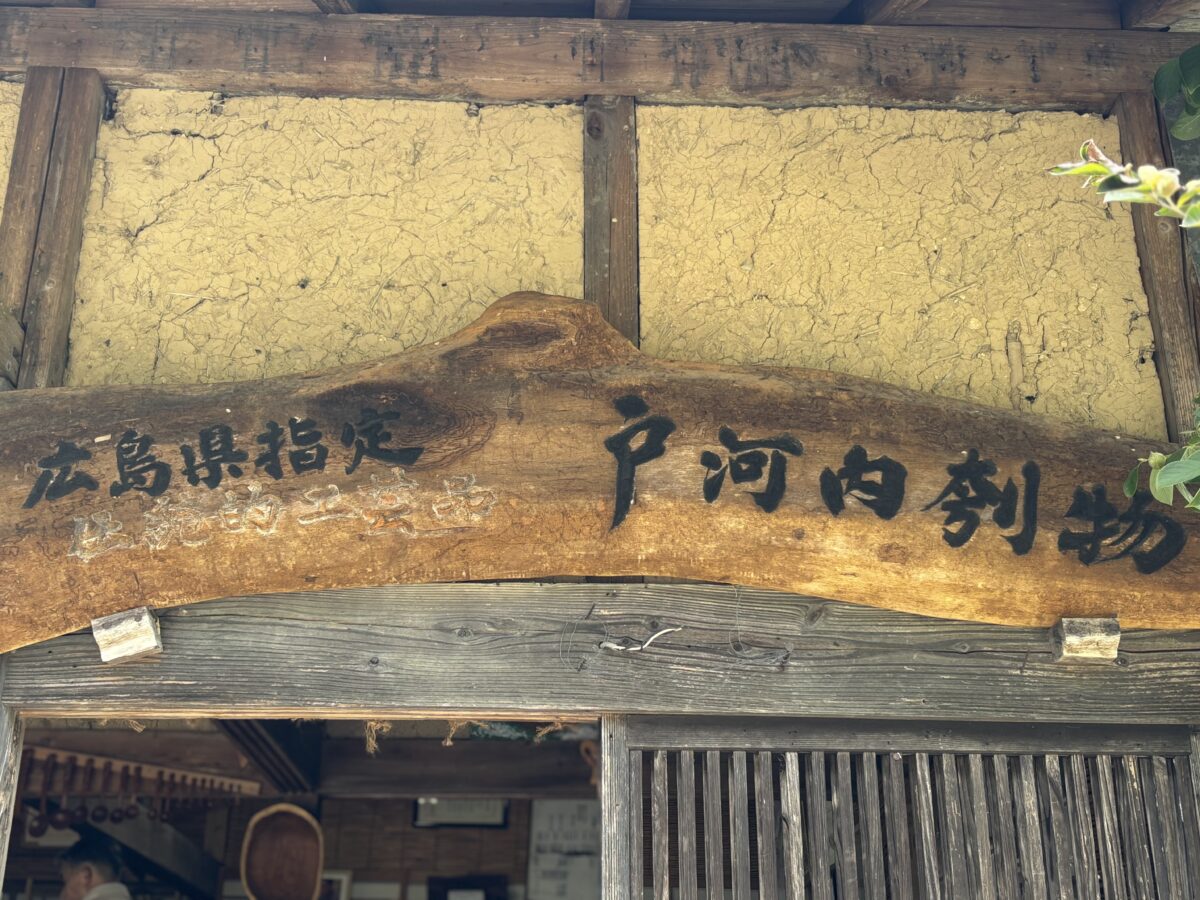 広島県指定
伝統的工芸品
戸河内刳物